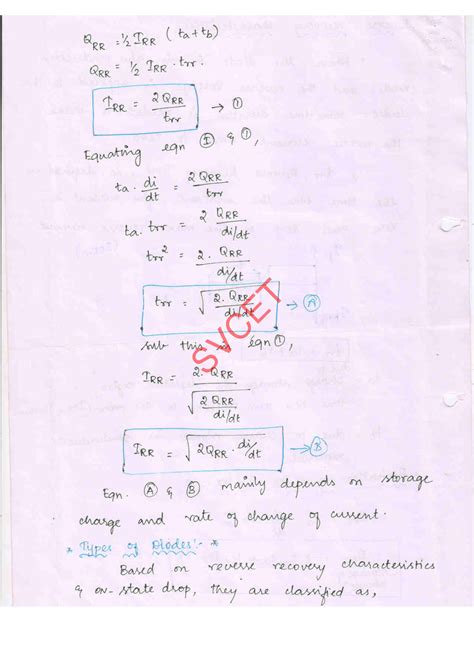 Q_RR = ½ I_RR (ta + tb)
Q_RR = ½ I_RR · trr.
I_RR = 2 Q_RR / trr → ①
Equating eqn Ⓘ & ①,
ta · di/dt = 2 Q_RR / trr
ta · trr = 2 Q_RR / di/dt
trr² = 2 · Q_RR / di/dt
trr = √(2 · Q_RR / di/dt) → Ⓐ
sub this in eqn ①,
I_RR = 2 · Q_RR / √(2 Q_RR / di/dt)
I_RR = √(2Q_RR · di/dt) → Ⓑ
Eqn. Ⓐ & Ⓑ mainly depends on storage
charge and rate of change of current.
* Types of Diodes:- *
Based on reverse recovery characteristics
& on-state drop, they are classified as,
SVCET